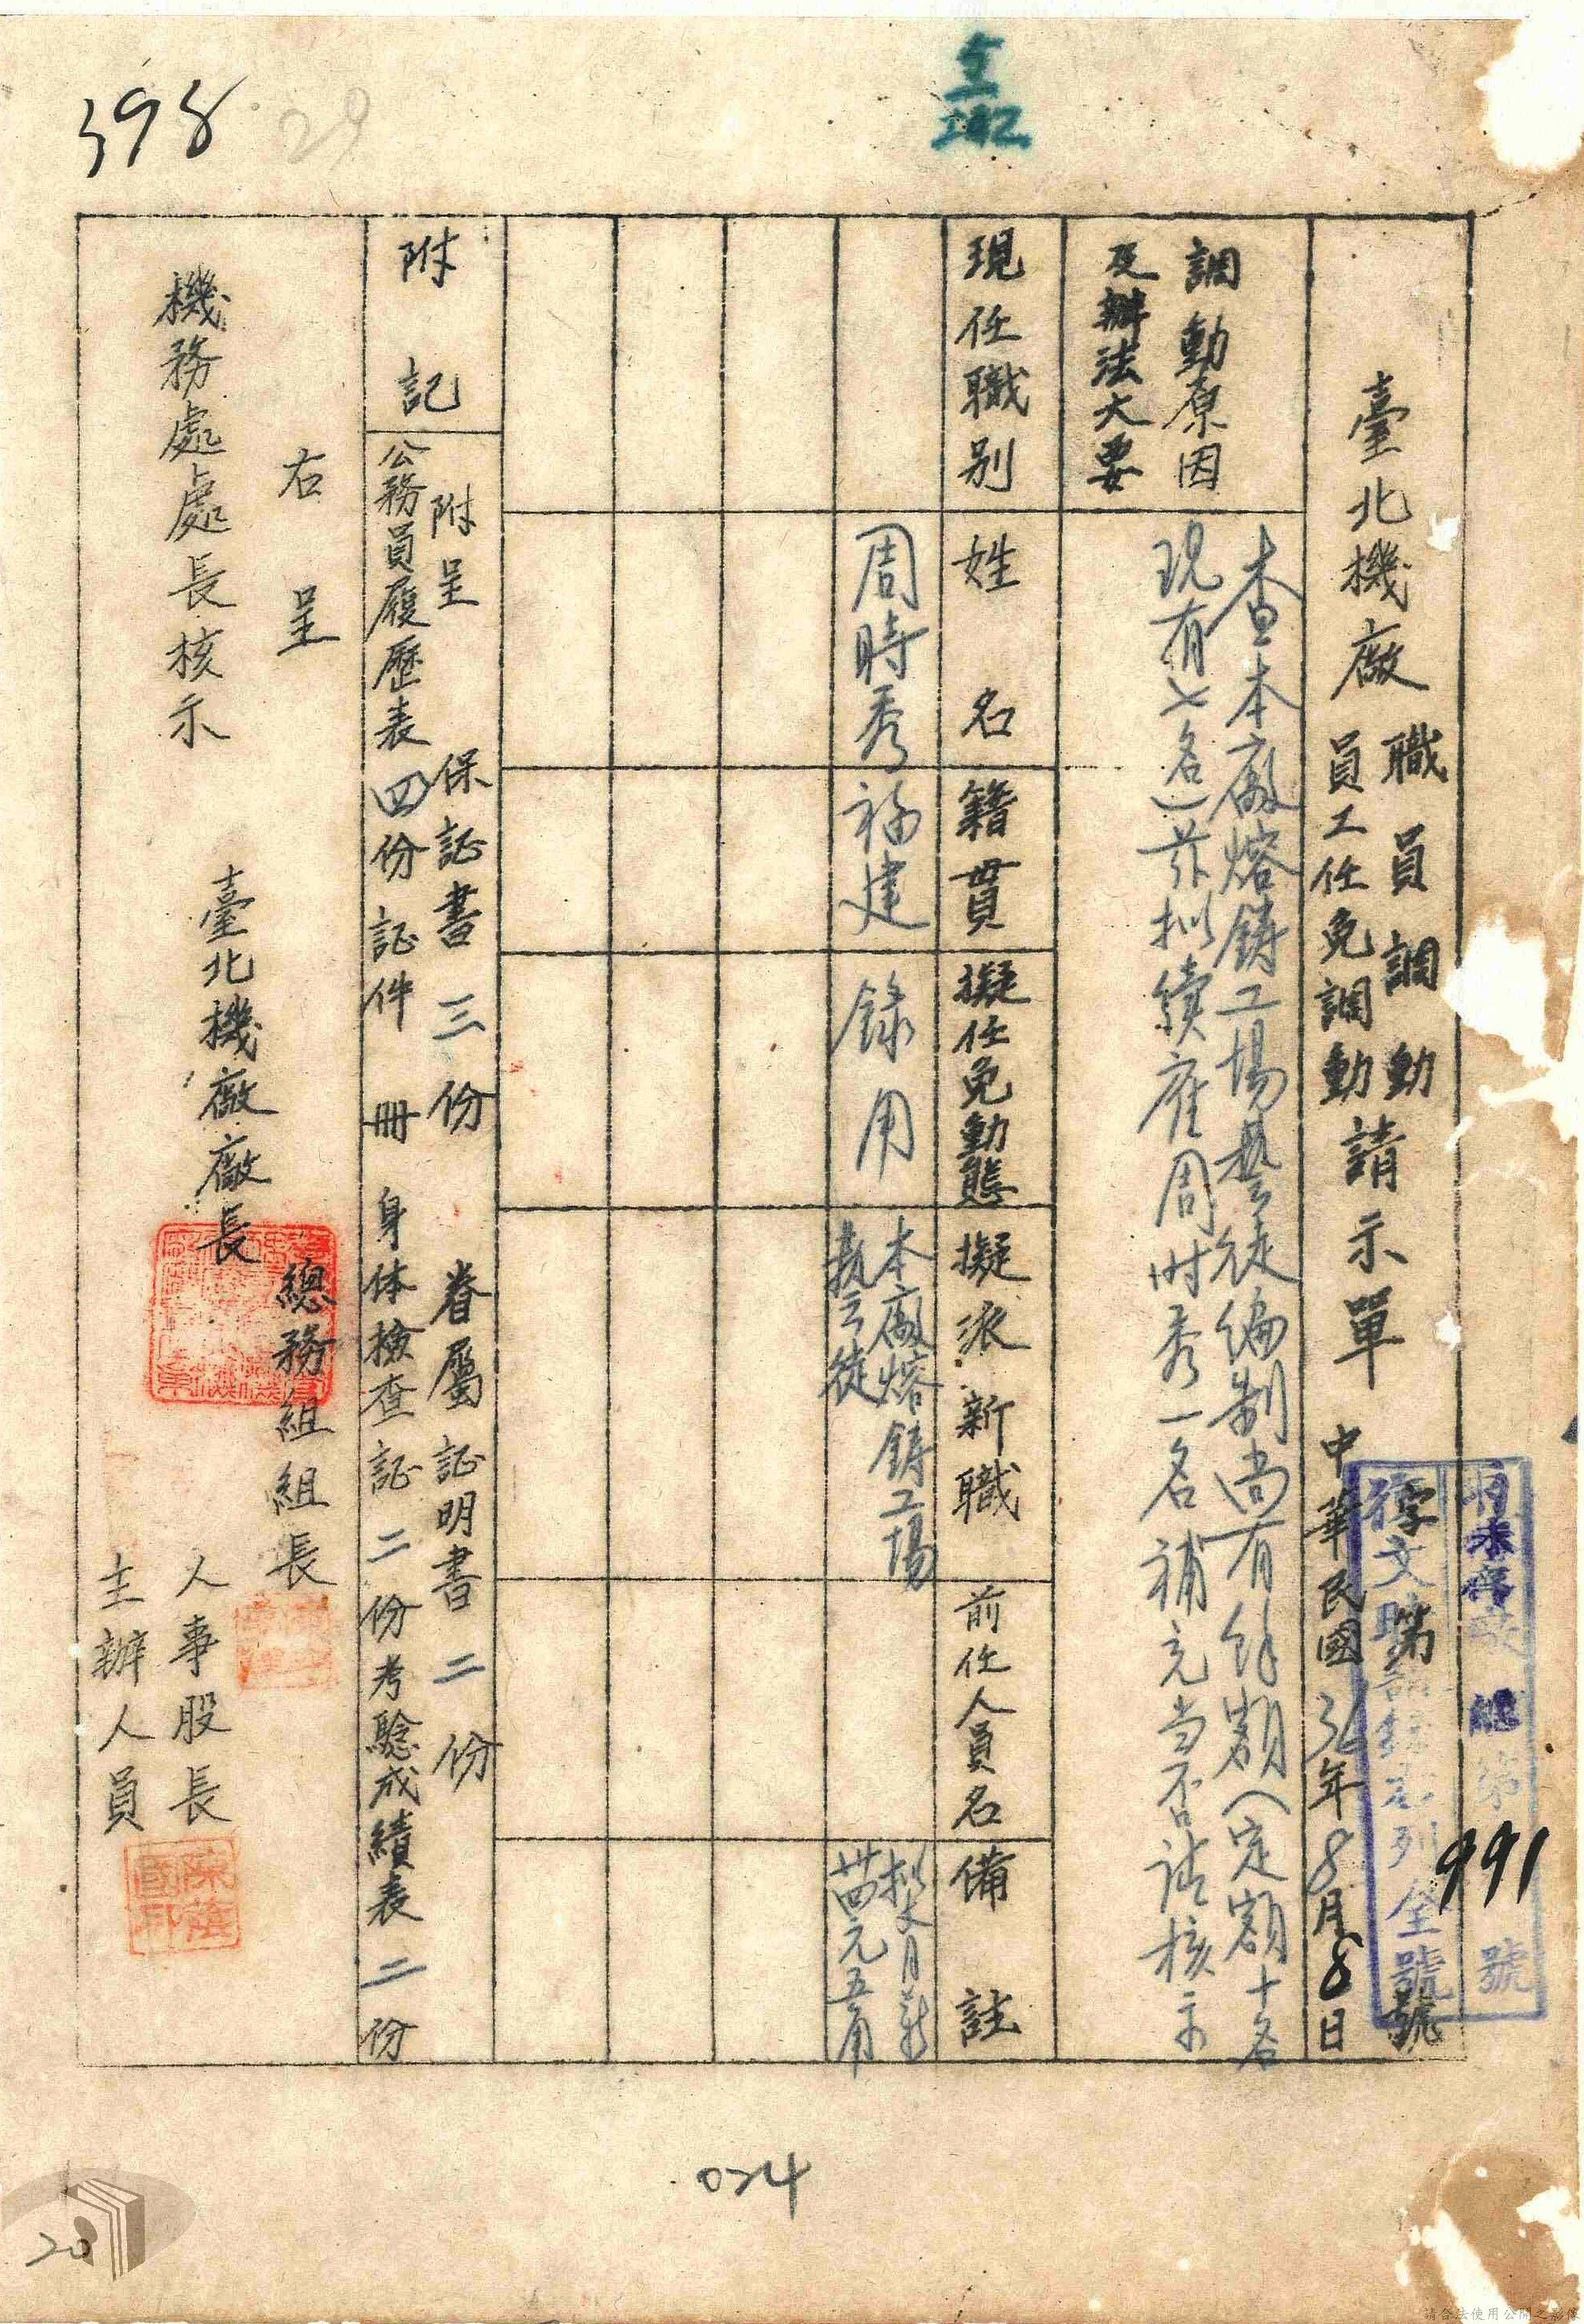 398
29
臺北機廠
職員調動
員工任免調動
請示單
中華民國36年8月8日
第
號
991
號
調動原因
及辦法大要
查本廠熔鑄工場藝徒編制尚有餘額(定額十名
現有七名)茲拟續雇周时秀一名補充当否請核示
現任職別
姓名
籍貫
擬任免動態
擬派新職
前任人員名
備註
周時秀
福建
錄用
本廠熔鑄工場
藝徒
拟支月薪
卌四元五角
附記
附呈
保証書三份
眷屬証明書二份
公務員履歷表四份
証件 冊
身体檢查証二份
考驗成績表二份
右呈
機務處處長核示
臺北機廠廠長
總務組組長
人事股長
主辦人員
024
20
請合法使用公開之影像